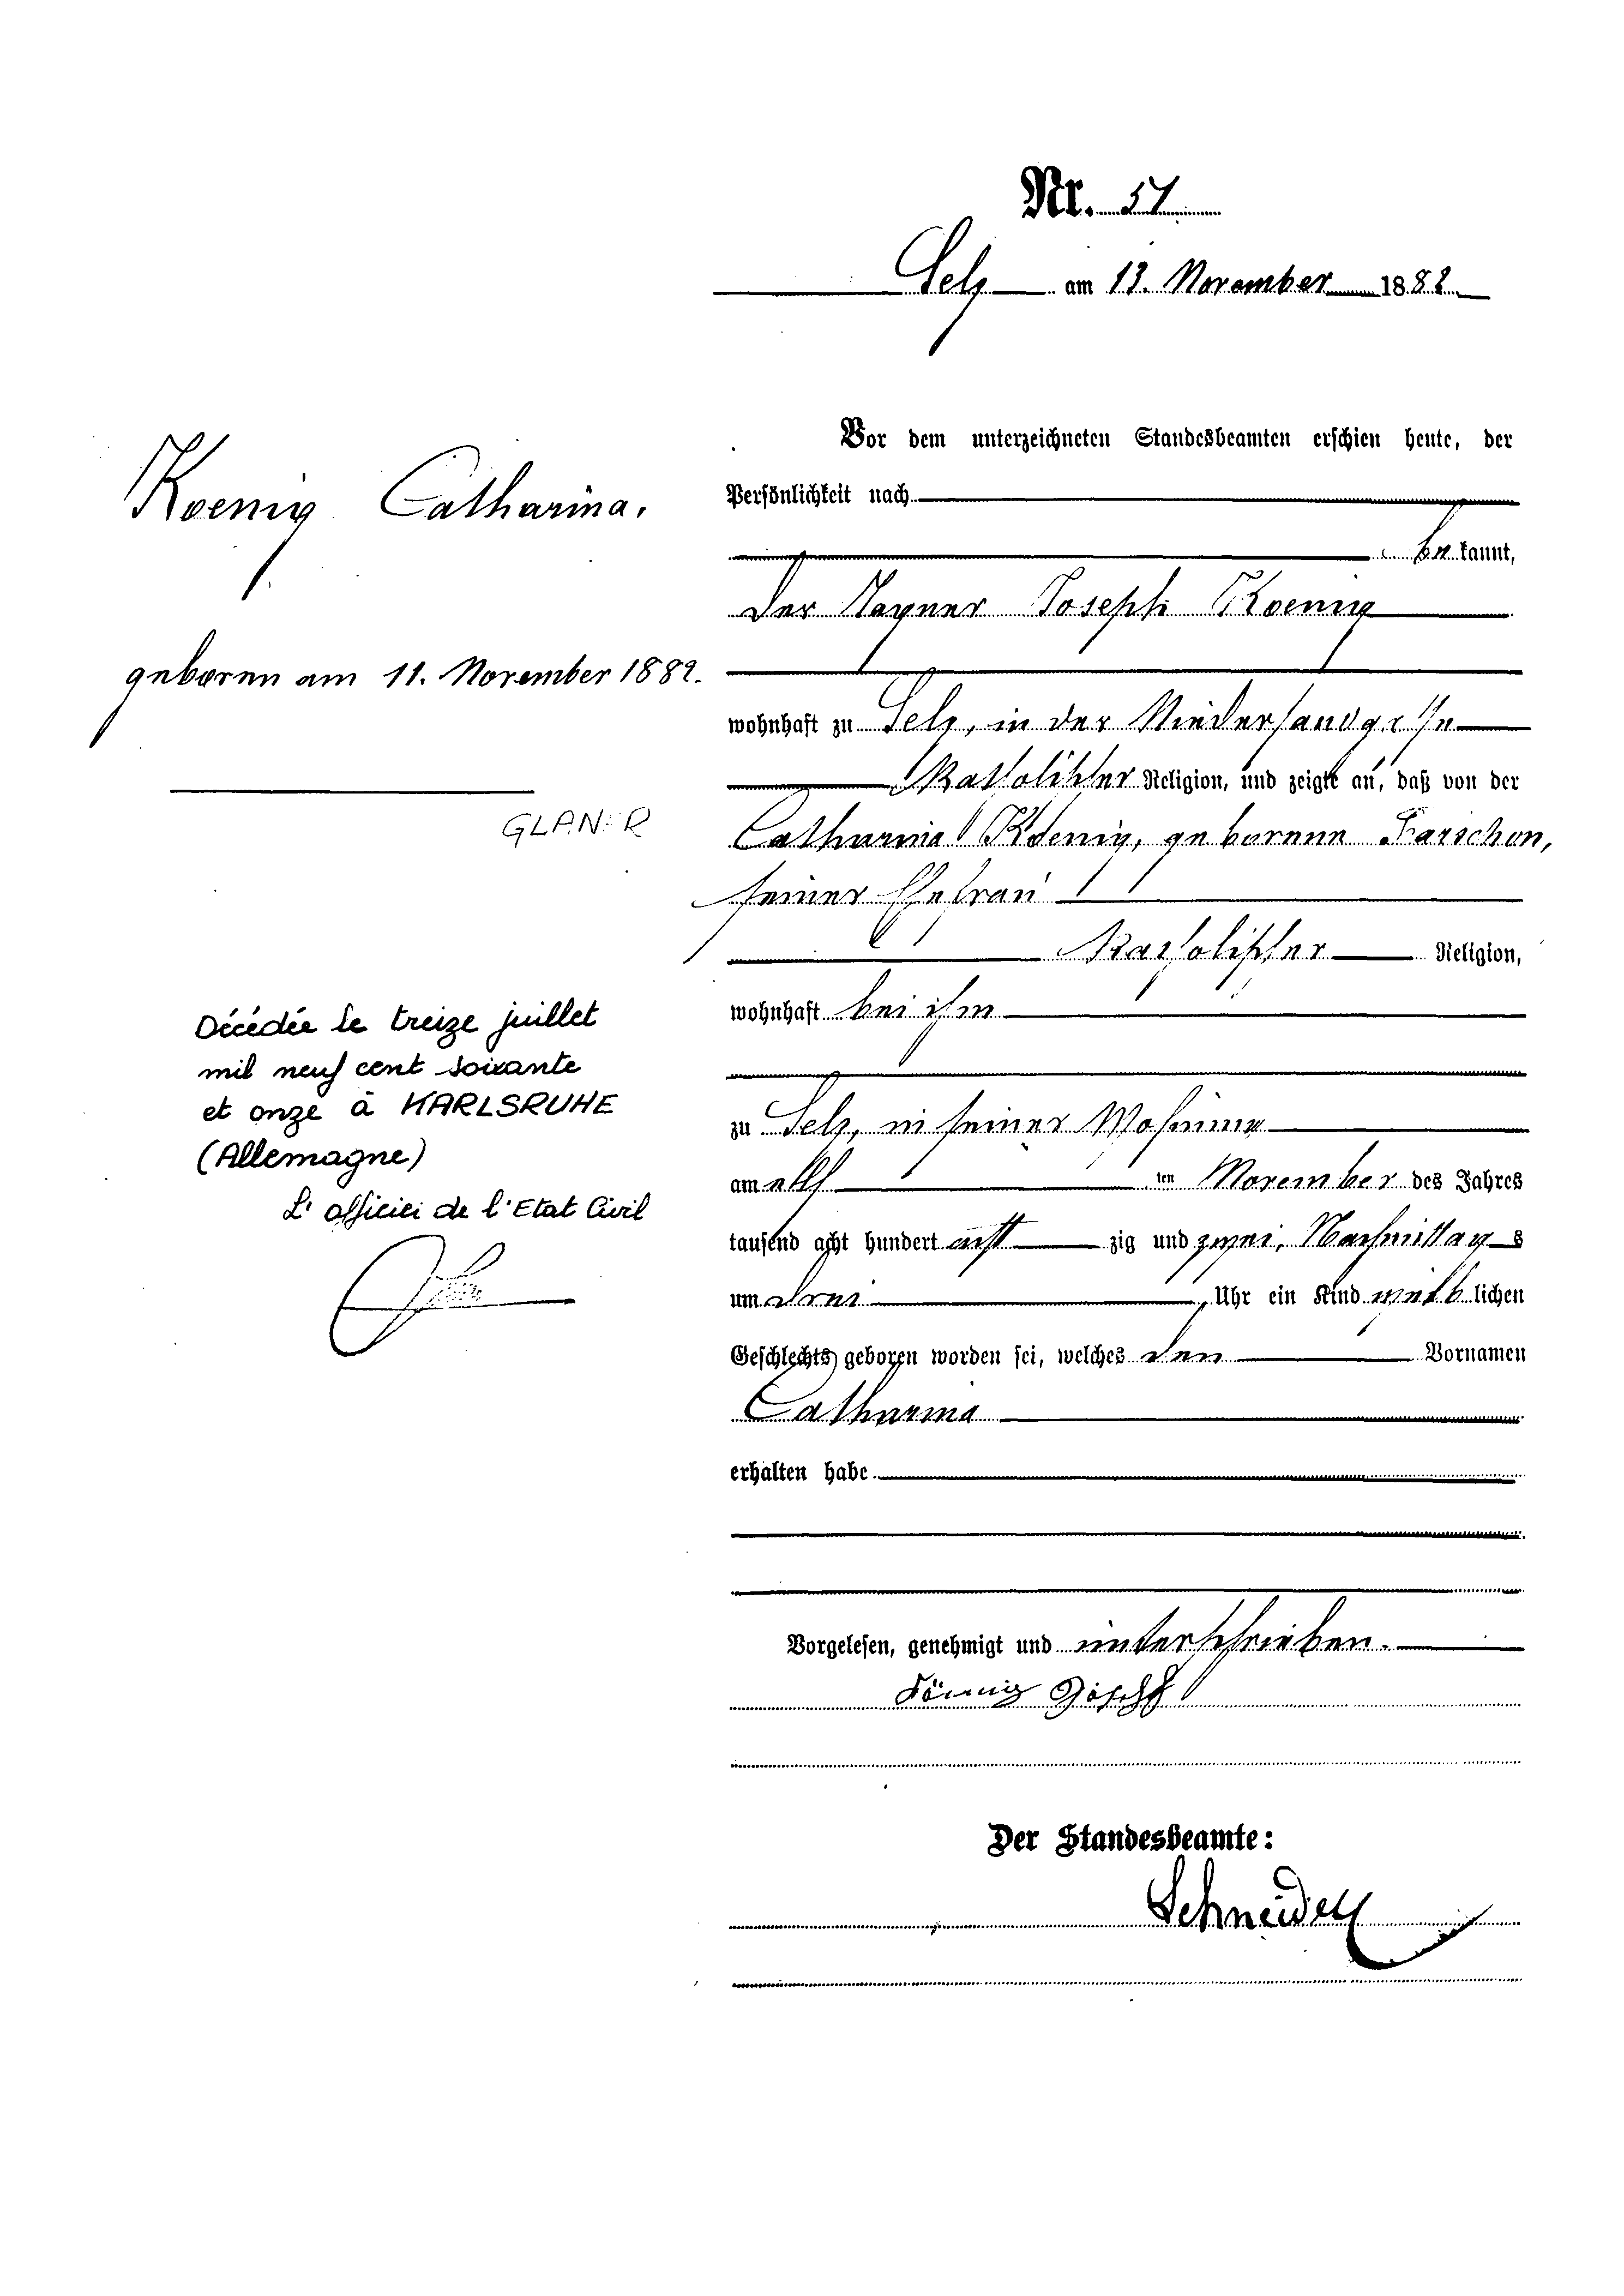 Nr. 51
Selz am 13. November 1882
Koenig Catharina.
geboren am 11. November 1882.
GLANER
Décédée le treize juillet
mil neuf cent soixante
et onze à KARLSRUHE
(Allemagne)
L'officier de l'Etat Civil
Vor dem unterzeichneten Standesbeamten erschien heute, der
Persönlichkeit nach
be kannt,
der Wagner Joseph Koenig
wohnhaft zu Selz, in der
katholischer Religion, und zeigte an, daß von der
Catharina Koenig, geborenen
seiner Ehefrau
katholischer Religion,
wohnhaft bei ihm
zu Selz, in seiner Wohnung
am elf ten November des Jahres
tausend acht hundert acht zig und zwei, Nachmittag s
um drei Uhr ein Kind weib lichen
Geschlechts geboren worden sei, welches den Vornamen
Catharina
erhalten habe
Vorgelesen, genehmigt und unterschrieben.
Joseph
Der Standesbeamte:
Schneider